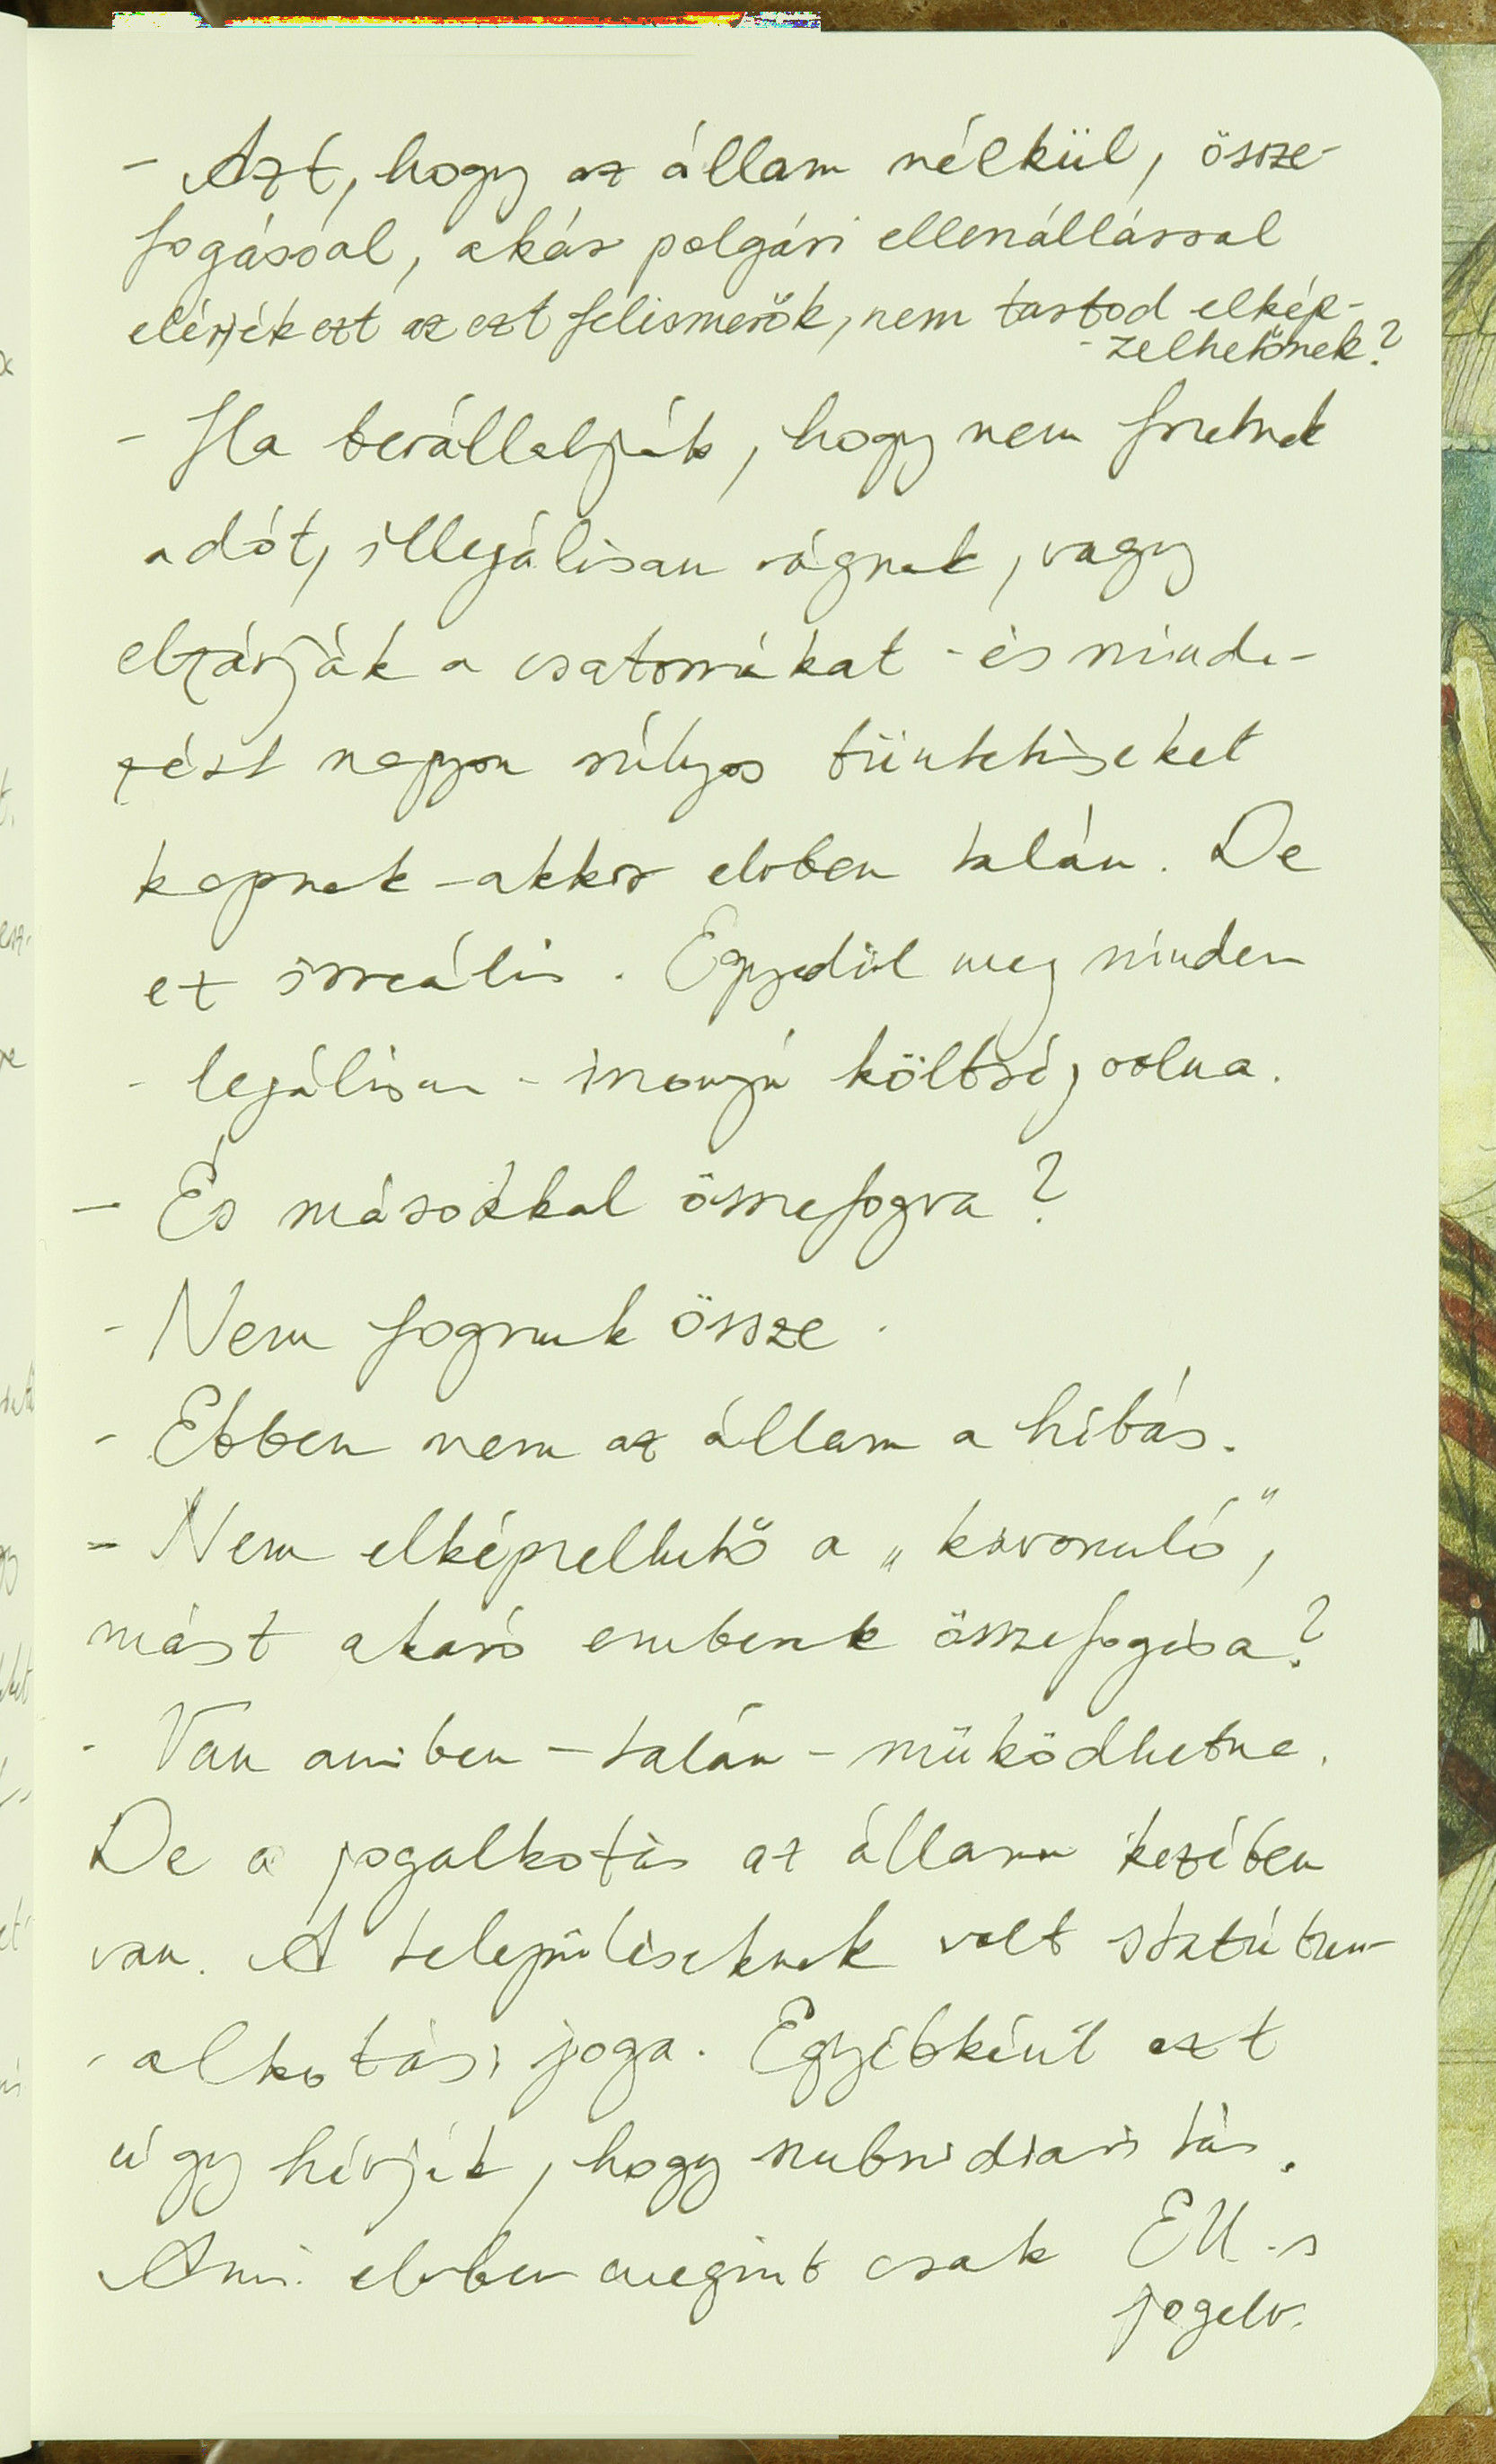 - Azt, hogy az állam nélkül, össze-
fogással, akár polgári ellenállással
elérjék ezt az ezt felismerők, nem tartod elkép-
-zelhetőnek?
- Ha bevállalják, hogy nem fizetnek
adót, illegálisan vágnak, vagy
elzárják a csatornákat - és minde-
zért nagyon súlyos büntetéseket
kapnak - akkor elvben talán. De
ez irreális. Egyedül meg minden
- legálisan - iszonyú költség volna.
- És másokkal összefogva?
- Nem fognak össze.
- Ebben nem az állam a hibás.
- Nem elképzelhető a „kivonuló",
mást akaró emberek összefogása?
- Van amiben - talán - működhetne.
De a jogalkotás az állam kezében
van. A településeknek volt statútum-
-alkotási joga. Egyébként ezt
úgy hívják, hogy szubszidiaritás.
Ami elvben megint csak EU-s
jogelv.